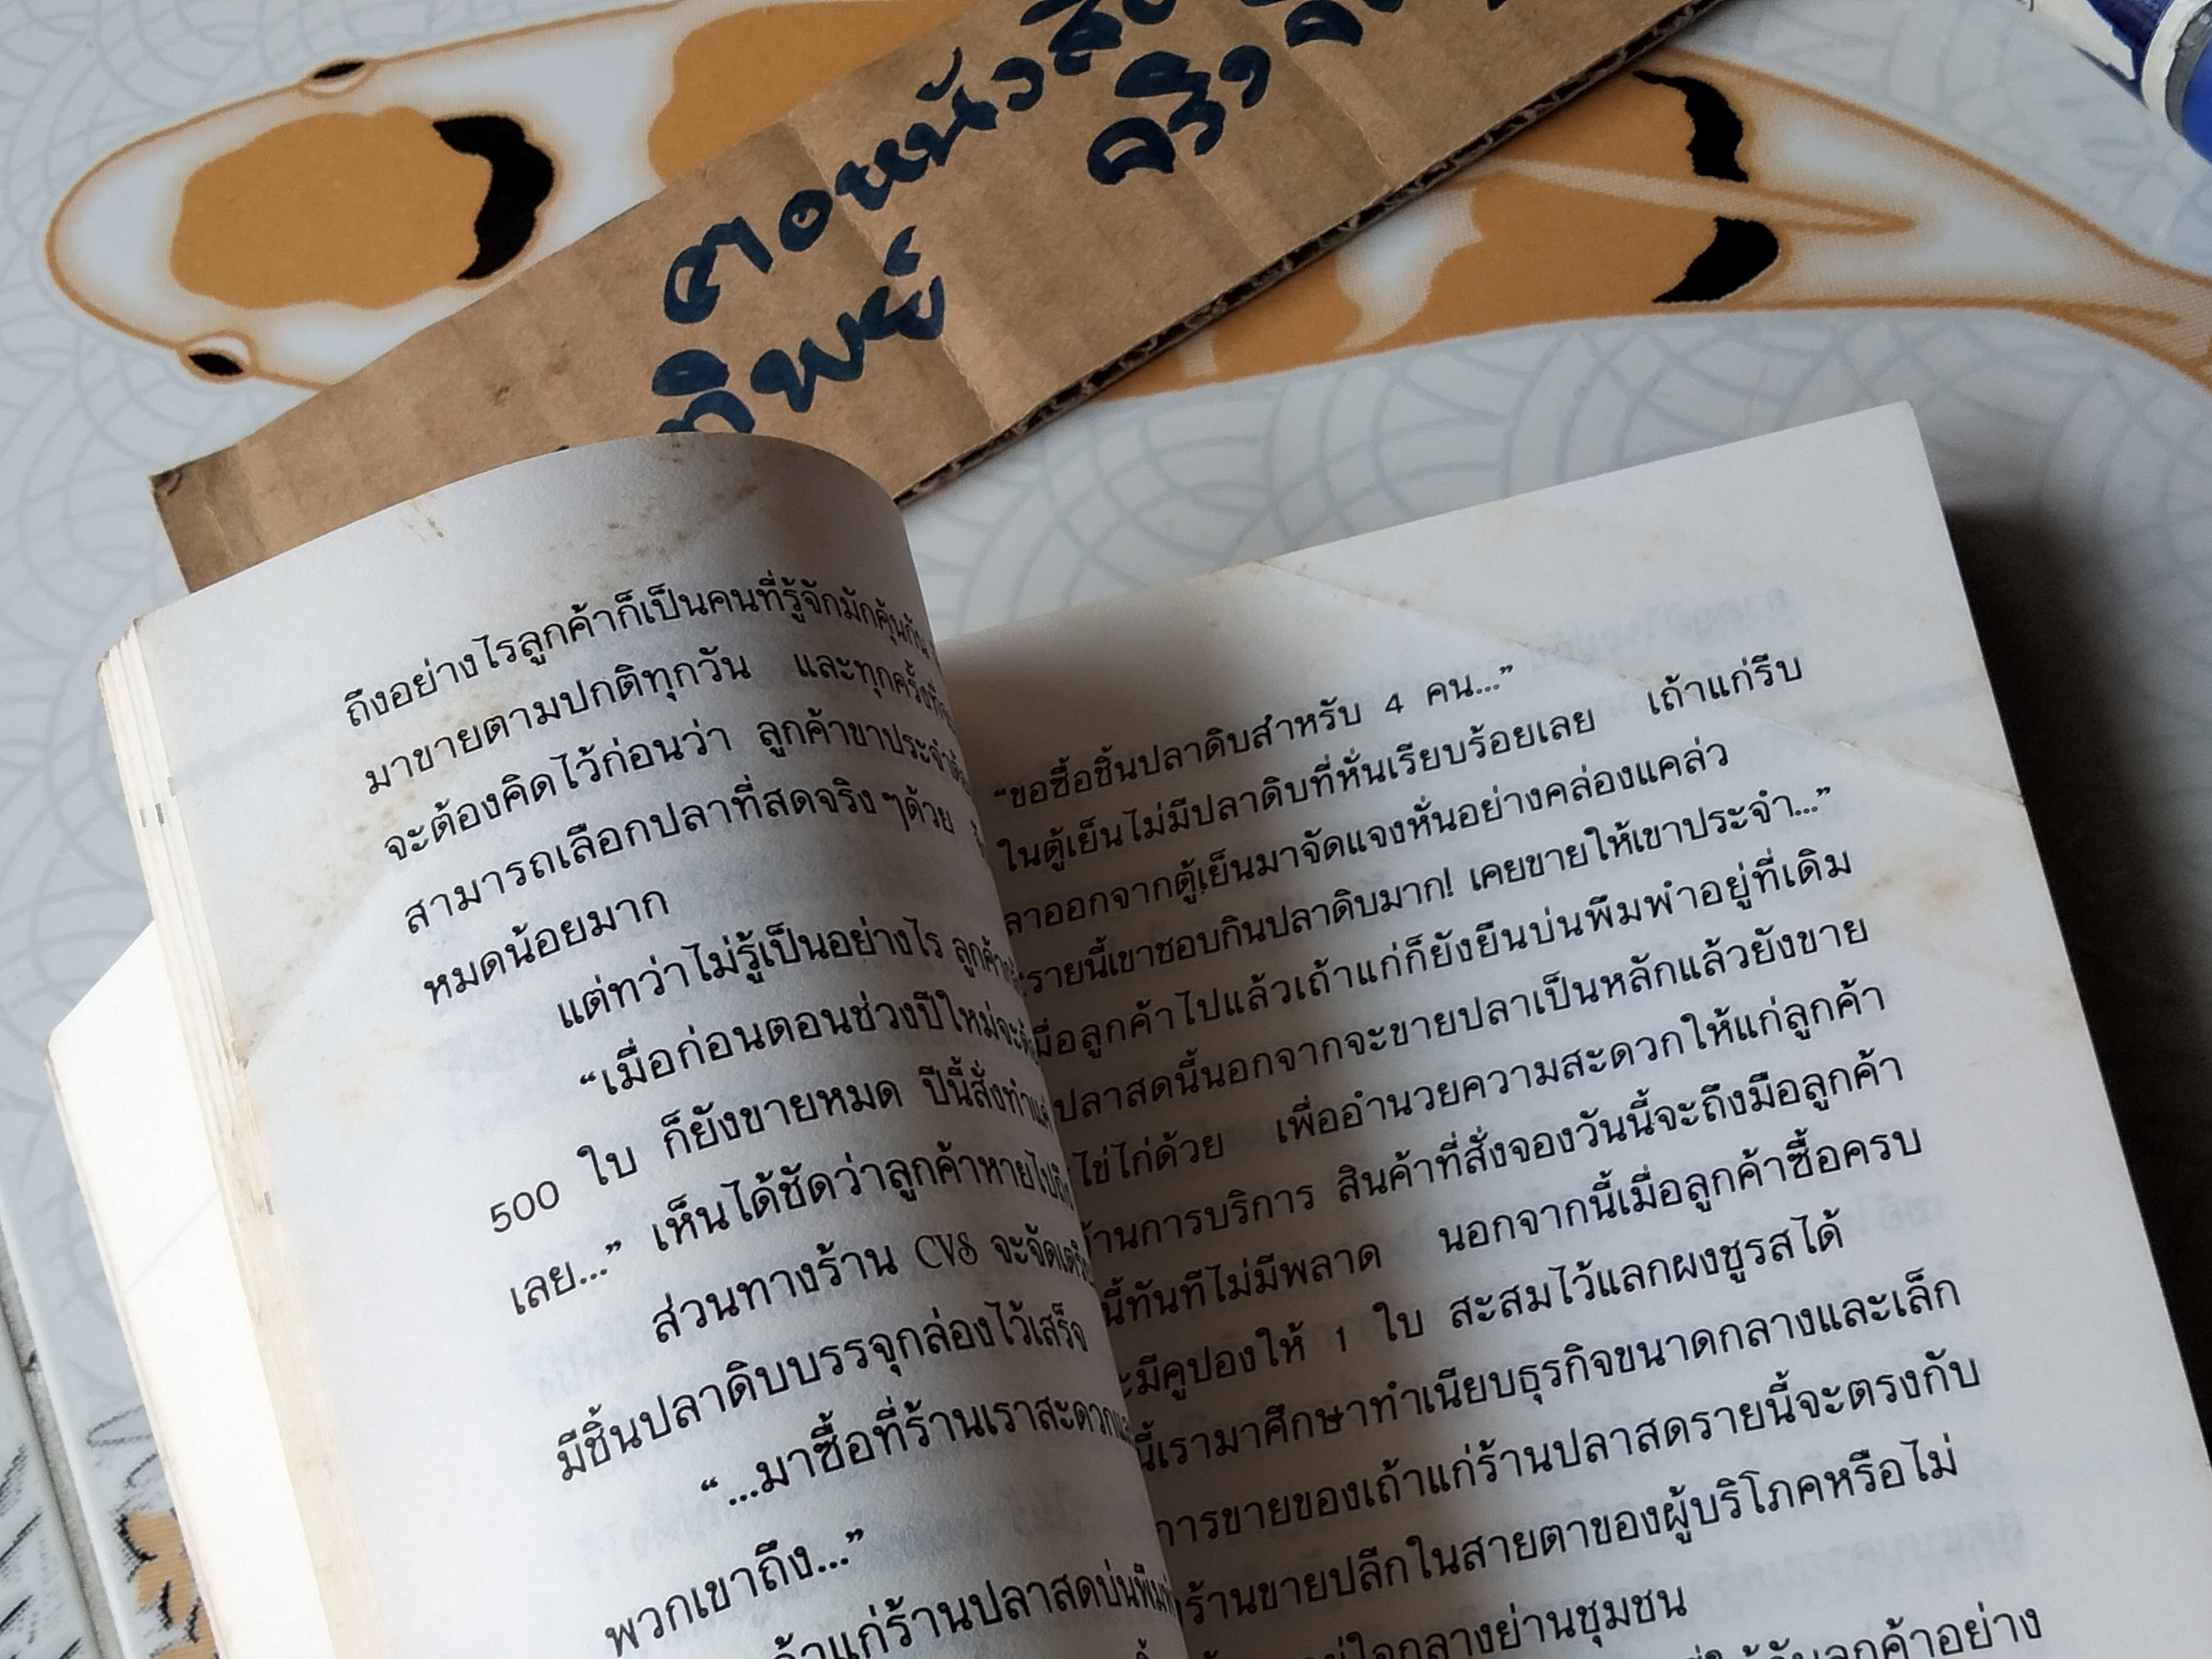 ตอหนัวสือ
ครึ่ง
ทิพย์
ถึงอย่างไรลูกค้าก็เป็นคนที่รู้จักมักคุ้นกัน
มาขายตามปกติทุกวัน และทุกครั้งที่
จะต้องคิดไว้ก่อนว่า ลูกค้าขาประจำ
สามารถเลือกปลาที่สดจริงๆด้วย
หมดน้อยมาก
แต่ทว่าไม่รู้เป็นอย่างไร ลูกค้า
“เมื่อก่อนตอนช่วงปีใหม่จะ
500 ใบ ก็ยังขายหมด ปีนี้สั่งทำ
เลย...” เห็นได้ชัดว่าลูกค้าหายไป
ส่วนทางร้าน CVS จะจัดเตรียม
มีชิ้นปลาดิบบรรจุกล่องไว้เสร็จ
“...มาซื้อที่ร้านเราสะดวก
พวกเขาถึง...”
แก่ร้านปลาสดบ่นพึม
“ขอซื้อชิ้นปลาดิบสำหรับ 4 คน...”
ในตู้เย็นไม่มีปลาดิบที่หั่นเรียบร้อยเลย เถ้าแก่รีบ
ลาออกจากตู้เย็นมาจัดแจงหั่นอย่างคล่องแคล่ว
รายนี้เขาชอบกินปลาดิบมาก! เคยขายให้เขาประจำ...”
มื่อลูกค้าไปแล้วเถ้าแก่ก็ยังยืนบ่นพึมพำอยู่ที่เดิม
ปลาสดนี้นอกจากจะขายปลาเป็นหลักแล้วยังขาย
ไข่ไก่ด้วย เพื่ออำนวยความสะดวกให้แก่ลูกค้า
านการบริการ สินค้าที่สั่งจองวันนี้จะถึงมือลูกค้า
นี้ทันทีไม่มีพลาด นอกจากนี้เมื่อลูกค้าซื้อครบ
มีคูปองให้ 1 ใบ สะสมไว้แลกผงชูรสได้
นี้เรามาศึกษาทำเนียบธุรกิจขนาดกลางและเล็ก
การขายของเถ้าแก่ร้านปลาสดรายนี้จะตรงกับ
ร้านขายปลีกในสายตาของผู้บริโภคหรือไม่
ใจกลางย่านชุมชน
ให้กับลูกค้าอย่าง